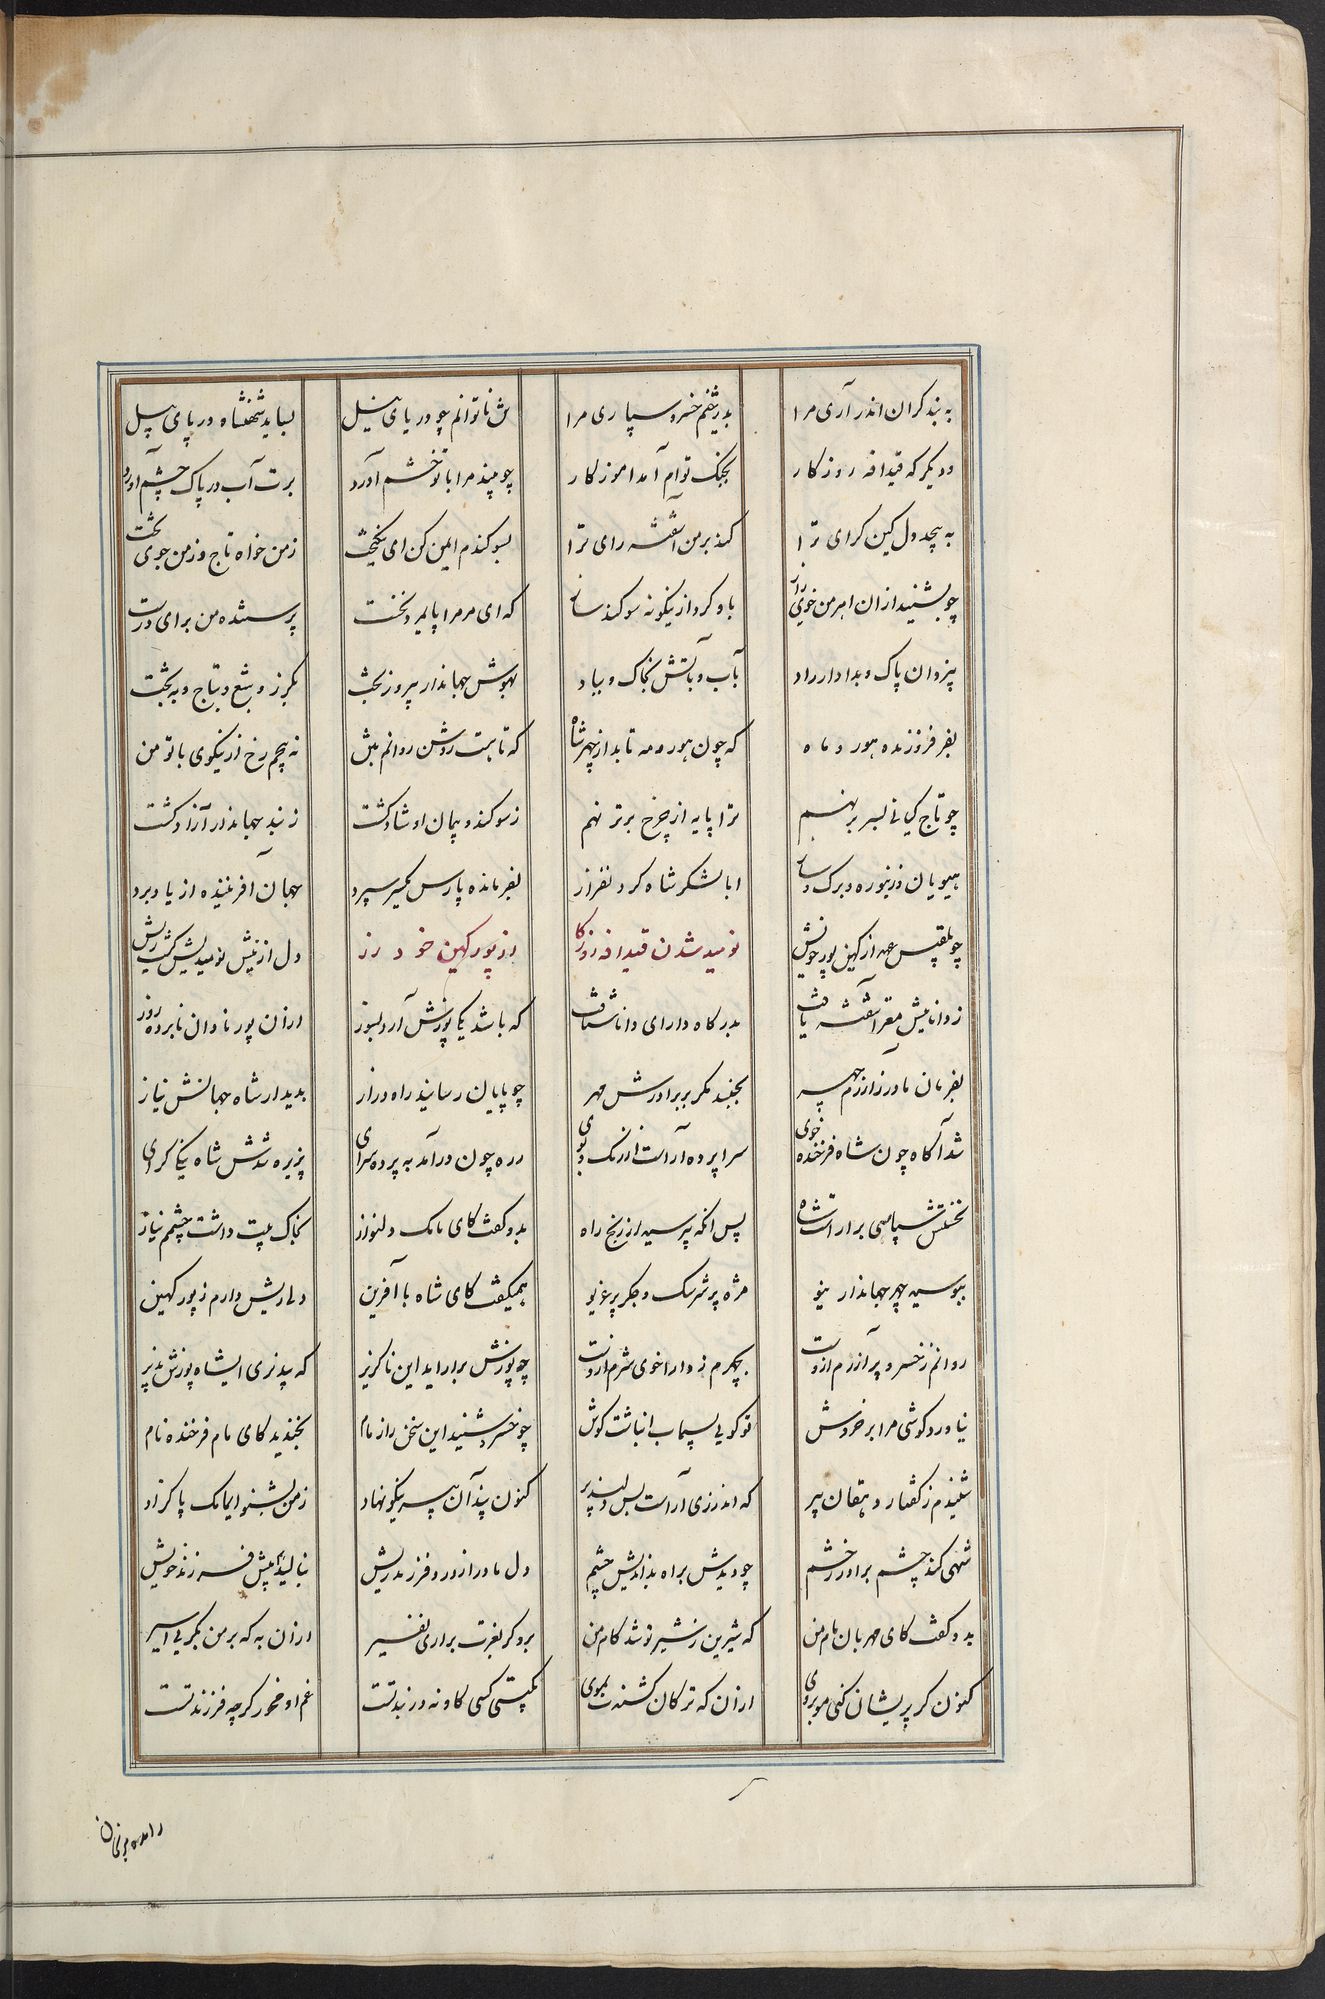 به بند گران اندر آری مرا بدژخیم خسرو سپاری مرا
ش ناتوانم چو دریای نیل بساید شهنشاه در پای پیل
ودیکر که قیدافه روزکار بجنک توام آمد اموزکار
چو بیند مرا با تو خشم آورد برت آب در پاک چشم آورد
به پیچد دل کین کرای ترا کند بر من آشفته رای ترا
بسوکندم ایمن کن ای نیکبخت ز من خواه تاج و ز من جوی تخت
چو بشنید از ان اهرمن خوی راز باو کرد ازینکونه سوکند ساز
که ای مر مرا پایمرد نخست پرستنده من برای درست
بیزدان پاک و بدادار راد بآب و بآتش بخاک و بباد
بهوش جهاندار پیروز بخت بکرز و بتیغ و بتاج و به تخت
بفر فروزنده هور و ماه که چون هور و مه تابد از چهر شاه
که تا هست روشن روانم بتن نه پیچم رخ از نیکوی با تو من
چو تاج کیانی بسر بر نهم ترا پایه از چرخ برتر نهم
ز سوکند و پیمان او شاد کشت ز بند جهاندار آزاد کشت
هیونان و زنبوره و برک و ساز ابا لشکر شاه کرد نفراز
بفرمانده پارس یکسر سپرد جهان آفریننده از یاد برد
نومید شدن قیدافه روزکار از پور کهین خود رز
چو بلقیس عهد از کهین پور خویش دل از نیش نومیدیش کشت ریش
ز دانائیش مغز آشفته یافت بدرکاه دارای دانا شتافت
که باشد یکی پوزش آرد بسوز ازان پور نادان نابرده روز
بفرمان مادر ز آزرم چهر بجنبد مکر بر برادرش مهر
چو پایان رسانید راه دراز بدیدار شاه جهانش نیاز
شد آکاه چون شاه فرخنده خوی سرا پرده آراست از رنک و بوی
رده چون درآمد به پرده سرای پزیره شدش شاه نیکی کرای
نخستش سپاسی برآراست شاه پس انکه بپرسید از رنج راه
بدو کفت کای مامک دلنواز بخاک پیت داشت چشمم نیاز
ببوسید چهر جهاندار نیو مژه پر سرشک و جکر پر غریو
همیکفت کای شاه با آفرین دلی ریش دارم ز پور کهین
روانم ز خسرو پر آزرم ازوست بچهرم ز دارا خوی شرم ازوست
چو پوزش براراید این ناکزیر که پذری ایشاه پوزش پذیر
نیاورد کوشی مرا بر خروش تو کویی بسیماب انباشت کوش
چو خسرو شنید این سخن را ز مام بخندید کای مام فرخنده نام
شنیدم ز کفتار دهقان پیر که اندرزی آراست بس دلپذیر
کنون پند آن پیر نیکو نهاد ز من بشنو ایمامک پاکزاد
شهی کند چشم برادر ز خشم چو دیدش براه بداندیش چشم
دل مادر از درد فرزند ریش بنالید پیش فرزند خویش
بدو کفت کای مهربان مام من که شیرین ز شیر تو شد کام من
برو کر بغرت براری نفیر ازان به که بر من بکریی اسیر
کنون کر پریشان کنی مو بروی ازان که ترکان کشندت بموی
بکیتی کسی کاو نه در بند تست غم او مخور کرچه فرزند تست